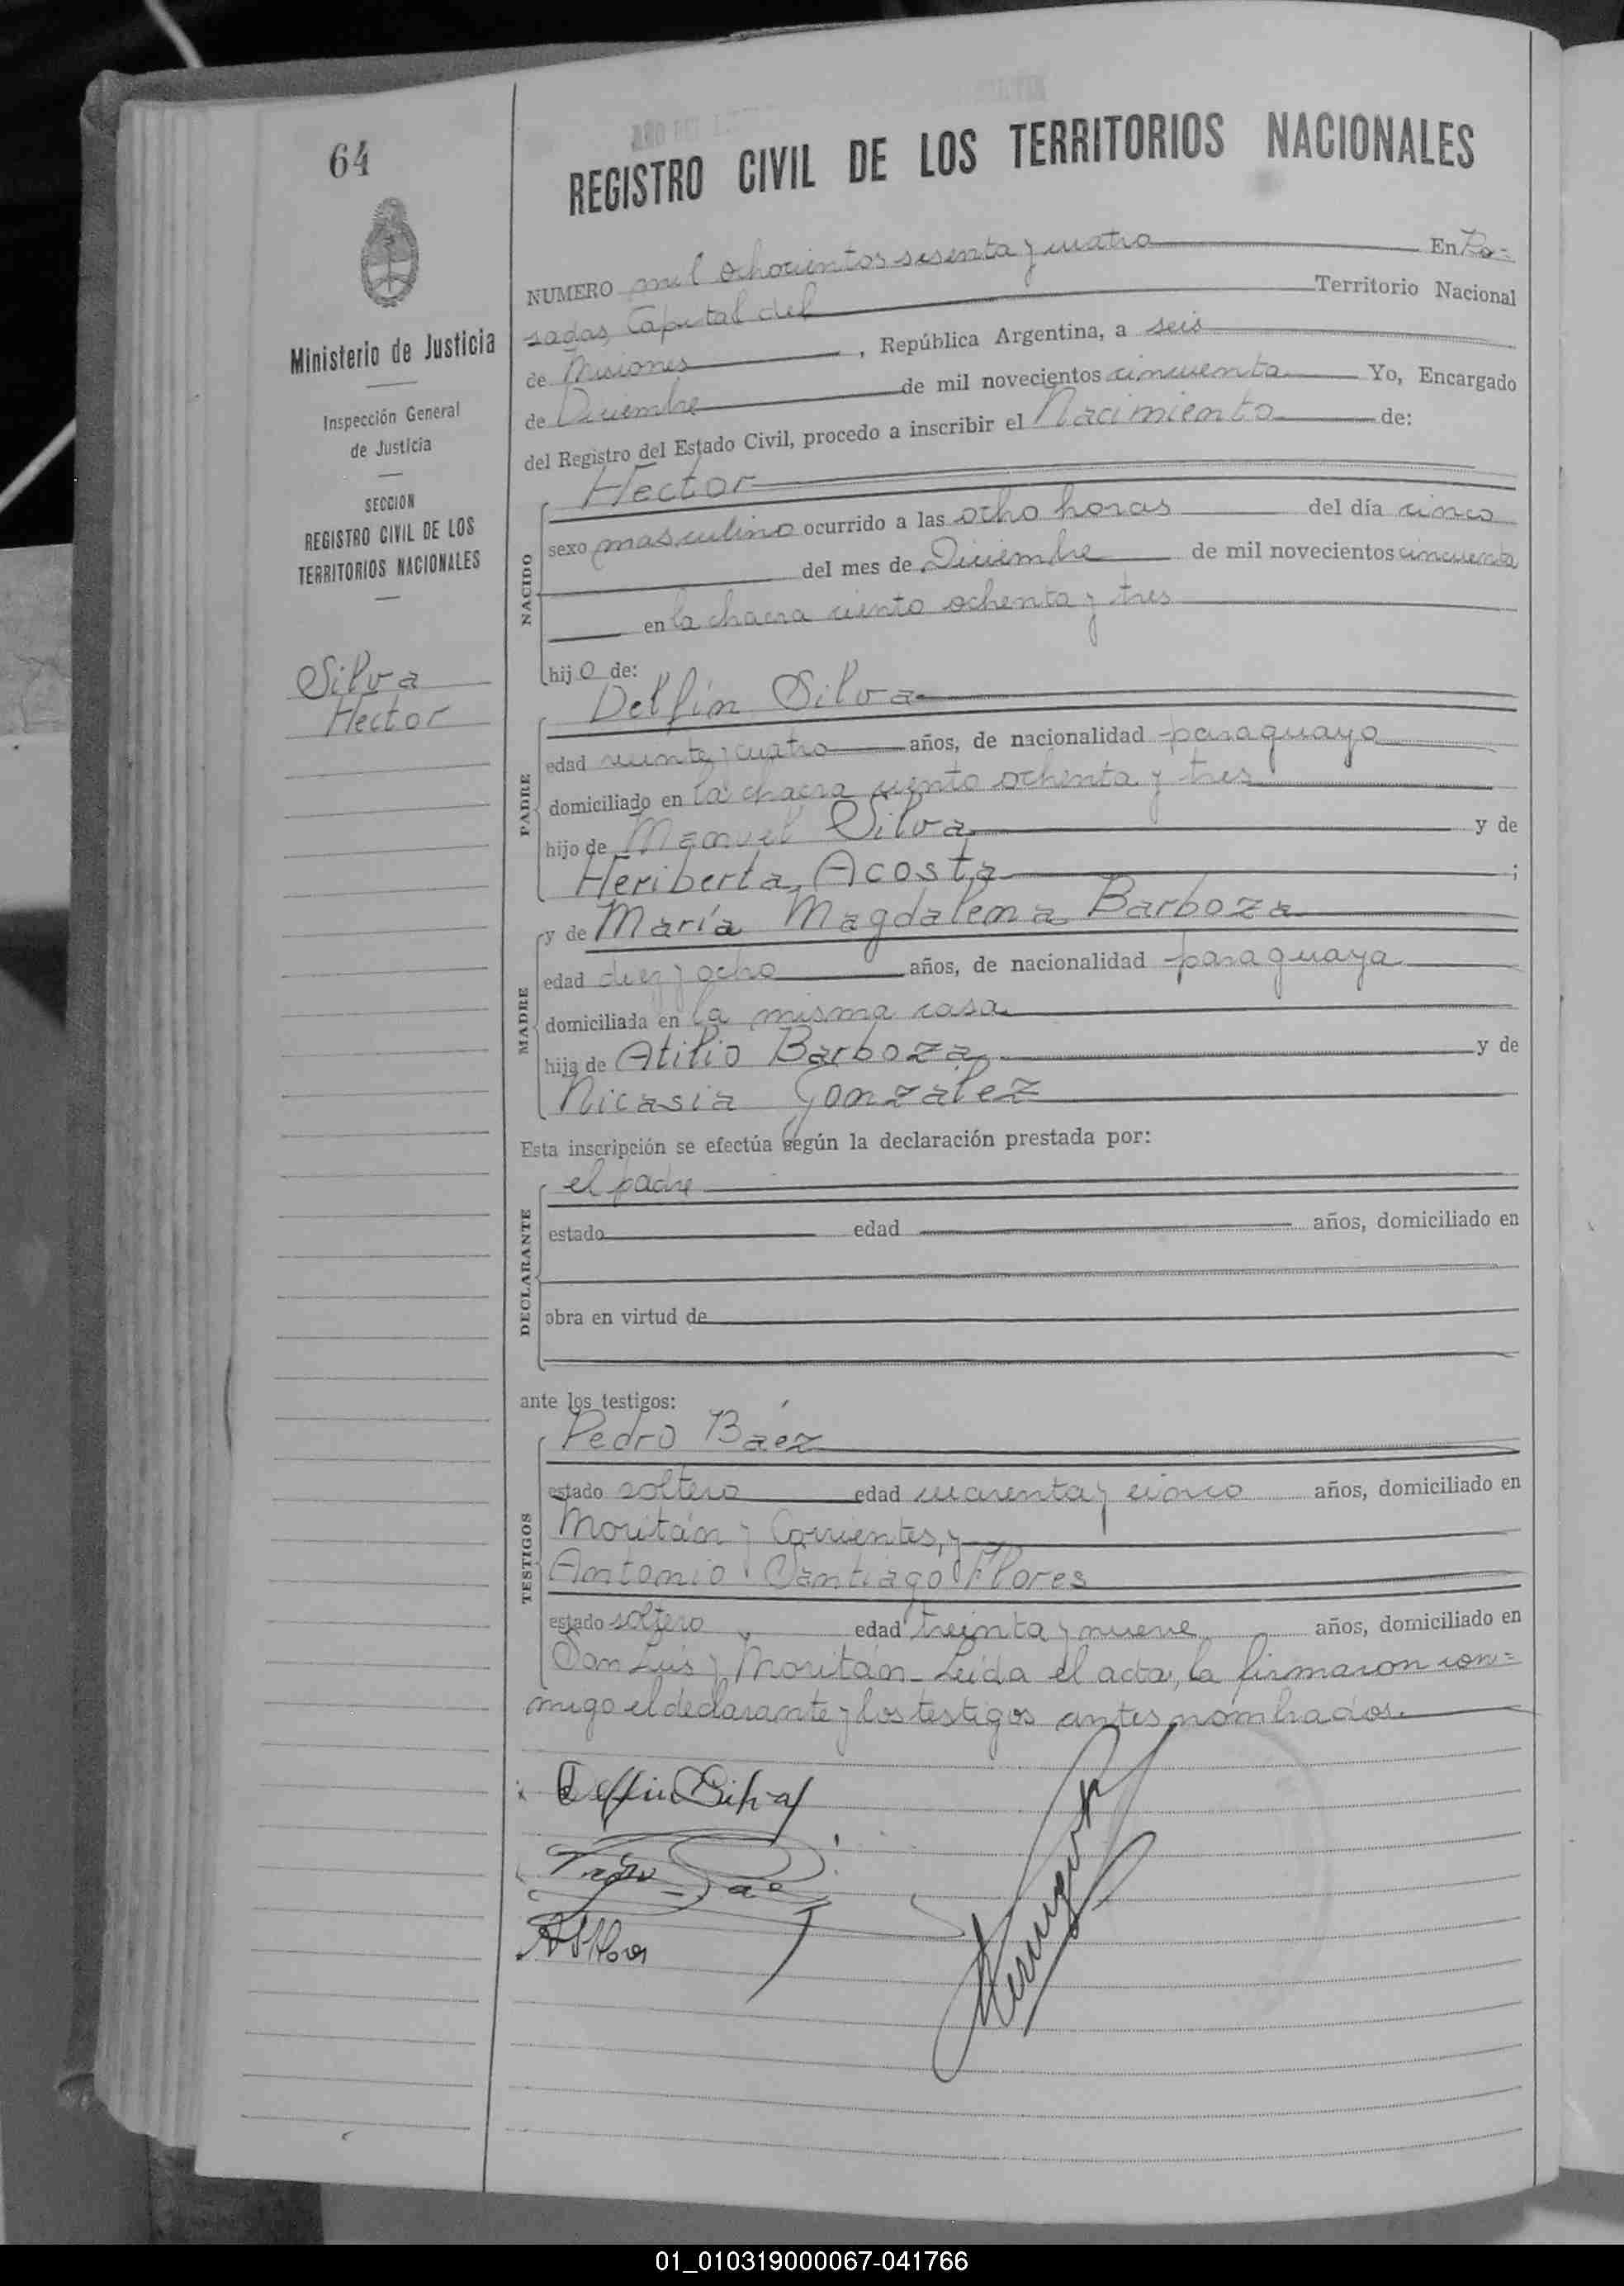 64
Ministerio de Justicia
Inspección General
de Justicia
SECCION
REGISTRO CIVIL DE LOS
TERRITORIOS NACIONALES
Silva
Hector
REGISTRO CIVIL DE LOS TERRITORIOS NACIONALES
NUMERO mil ochocientos sesenta y cuatro En Po=
sadas, Capital del Territorio Nacional
de Misiones, República Argentina, a seis
de Diciembre de mil novecientos cincuenta Yo, Encargado
del Registro del Estado Civil, procedo a inscribir el Nacimiento de:
NACIDO
Hector
sexo masculino ocurrido a las ocho horas del día cinco
del mes de Diciembre de mil novecientos cincuenta
en la chacra ciento ochenta y tres
hijo de:
PADRE
Delfín Silva
edad veinte y cuatro años, de nacionalidad paraguayo
domiciliado en la chacra ciento ochenta y tres
hijo de Manuel Silva y de
Heriberta Acosta ;
MADRE
y de María Magdalena Barboza
edad diez y ocho años, de nacionalidad paraguaya
domiciliada en la misma casa
hija de Atilio Barboza y de
Nicasia Gonzalez
Esta inscripción se efectúa según la declaración prestada por:
DECLARANTE
el padre
estado edad años, domiciliado en
obra en virtud de
ante los testigos:
TESTIGOS
Pedro Báez
estado soltero edad cuarenta y cinco años, domiciliado en
Moritán y Corrientes, y
Antonio Santiago Flores
estado soltero edad treinta y nueve años, domiciliado en
San Luis y Moritán. Leída el acta, la firmaron con=
migo el declarante y los testigos antes nombrados.
Delfin Silva
A S Flores
01_010319000067-041766